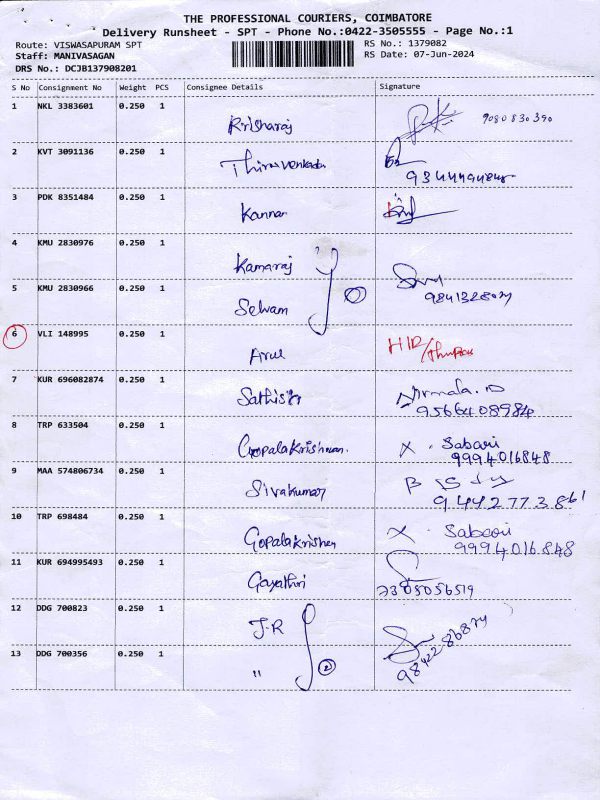 THE PROFESSIONAL COURIERS, COIMBATORE
Delivery Runsheet - SPT - Phone No.:0422-3505555 - Page No.:1
Route: VISWASAPURAM SPT RS No.: 1379082
Staff: MANIVASAGAN RS Date: 07-Jun-2024
DRS No.: DCJB137908201
S No Consignment No Weight PCS Consignee Details Signature
1 NKL 3383601 0.250 1
Krisharaj 9080830390
2 KVT 3091136 0.250 1
Thiruvenkada
3 PDK 8351484 0.250 1
Kannan
4 KMU 2830976 0.250 1
Kamaraj
5 KMU 2830966 0.250 1
Selvam
6 VLI 148995 0.250 1
Arul
7 KUR 696082874 0.250 1
Sathish Nirmala.D
9566408984
8 TRP 633504 0.250 1
Gopalakrishnan. X . Sabari
9994016848
9 MAA 574806734 0.250 1
Sivakumar
9442773861
10 TRP 698484 0.250 1
Gopalakrishnan X . Sabari
9994016848
11 KUR 694995493 0.250 1
Gayathri
7305056519
12 DDG 700823 0.250 1
J.R
13 DDG 700356 0.250 1
" 2